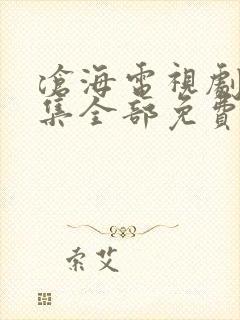 滄海電視劇
集全部免費
索艾